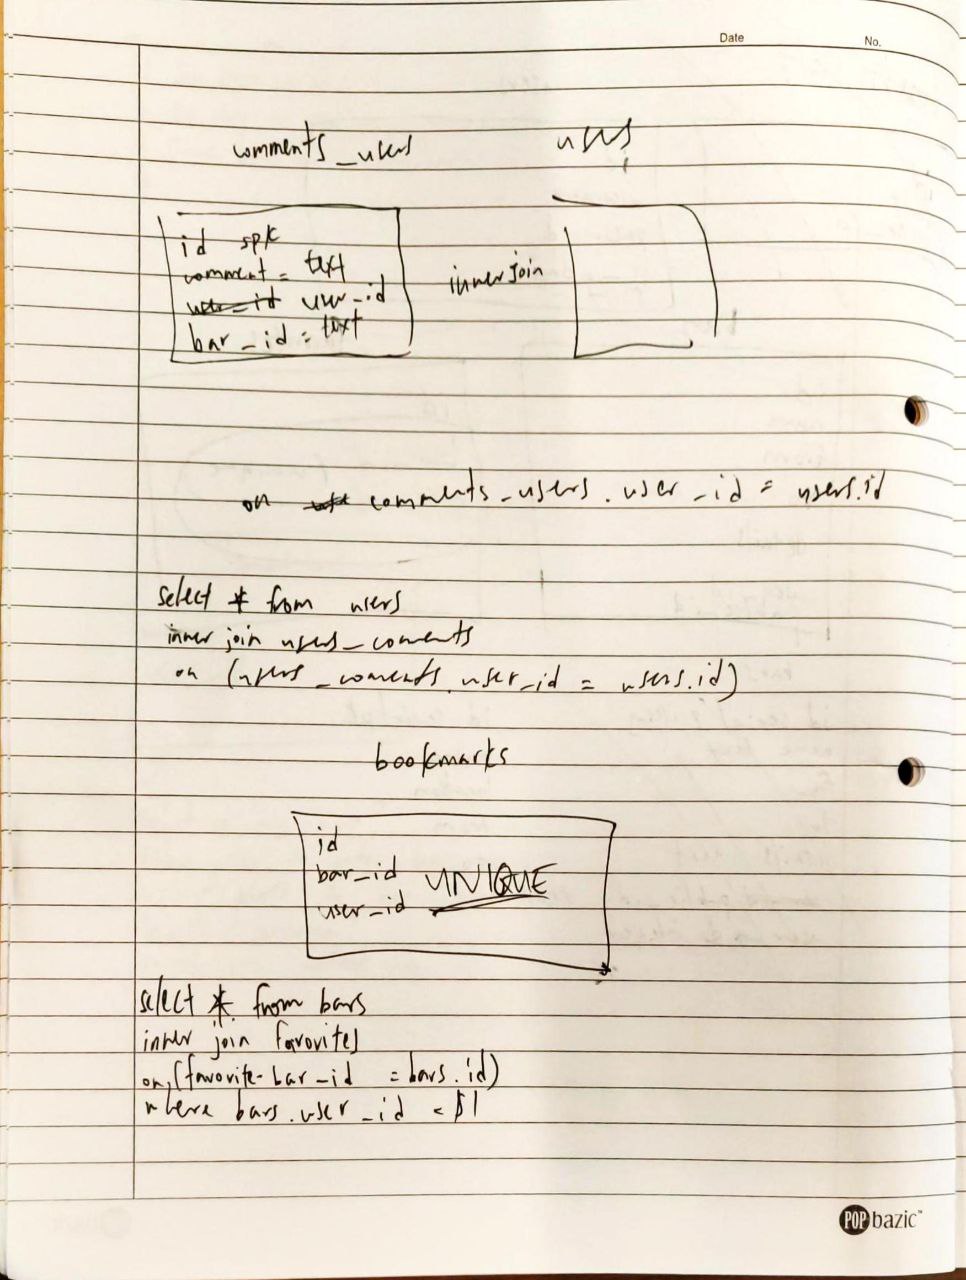 Date
No.
comments_users
users
id spk
comment = text
user_id user_id
bar_id = text
inner join
on comments_users.user_id = users.id
select * from users
inner join users_coments
on (users_coments.user_id = users.id)
bookmarks
id
bar_id UNIQUE
user_id
select * from bars
inner join favorites
on (favorite-bar_id = bars.id)
where bars.user_id = $1
POP bazic™